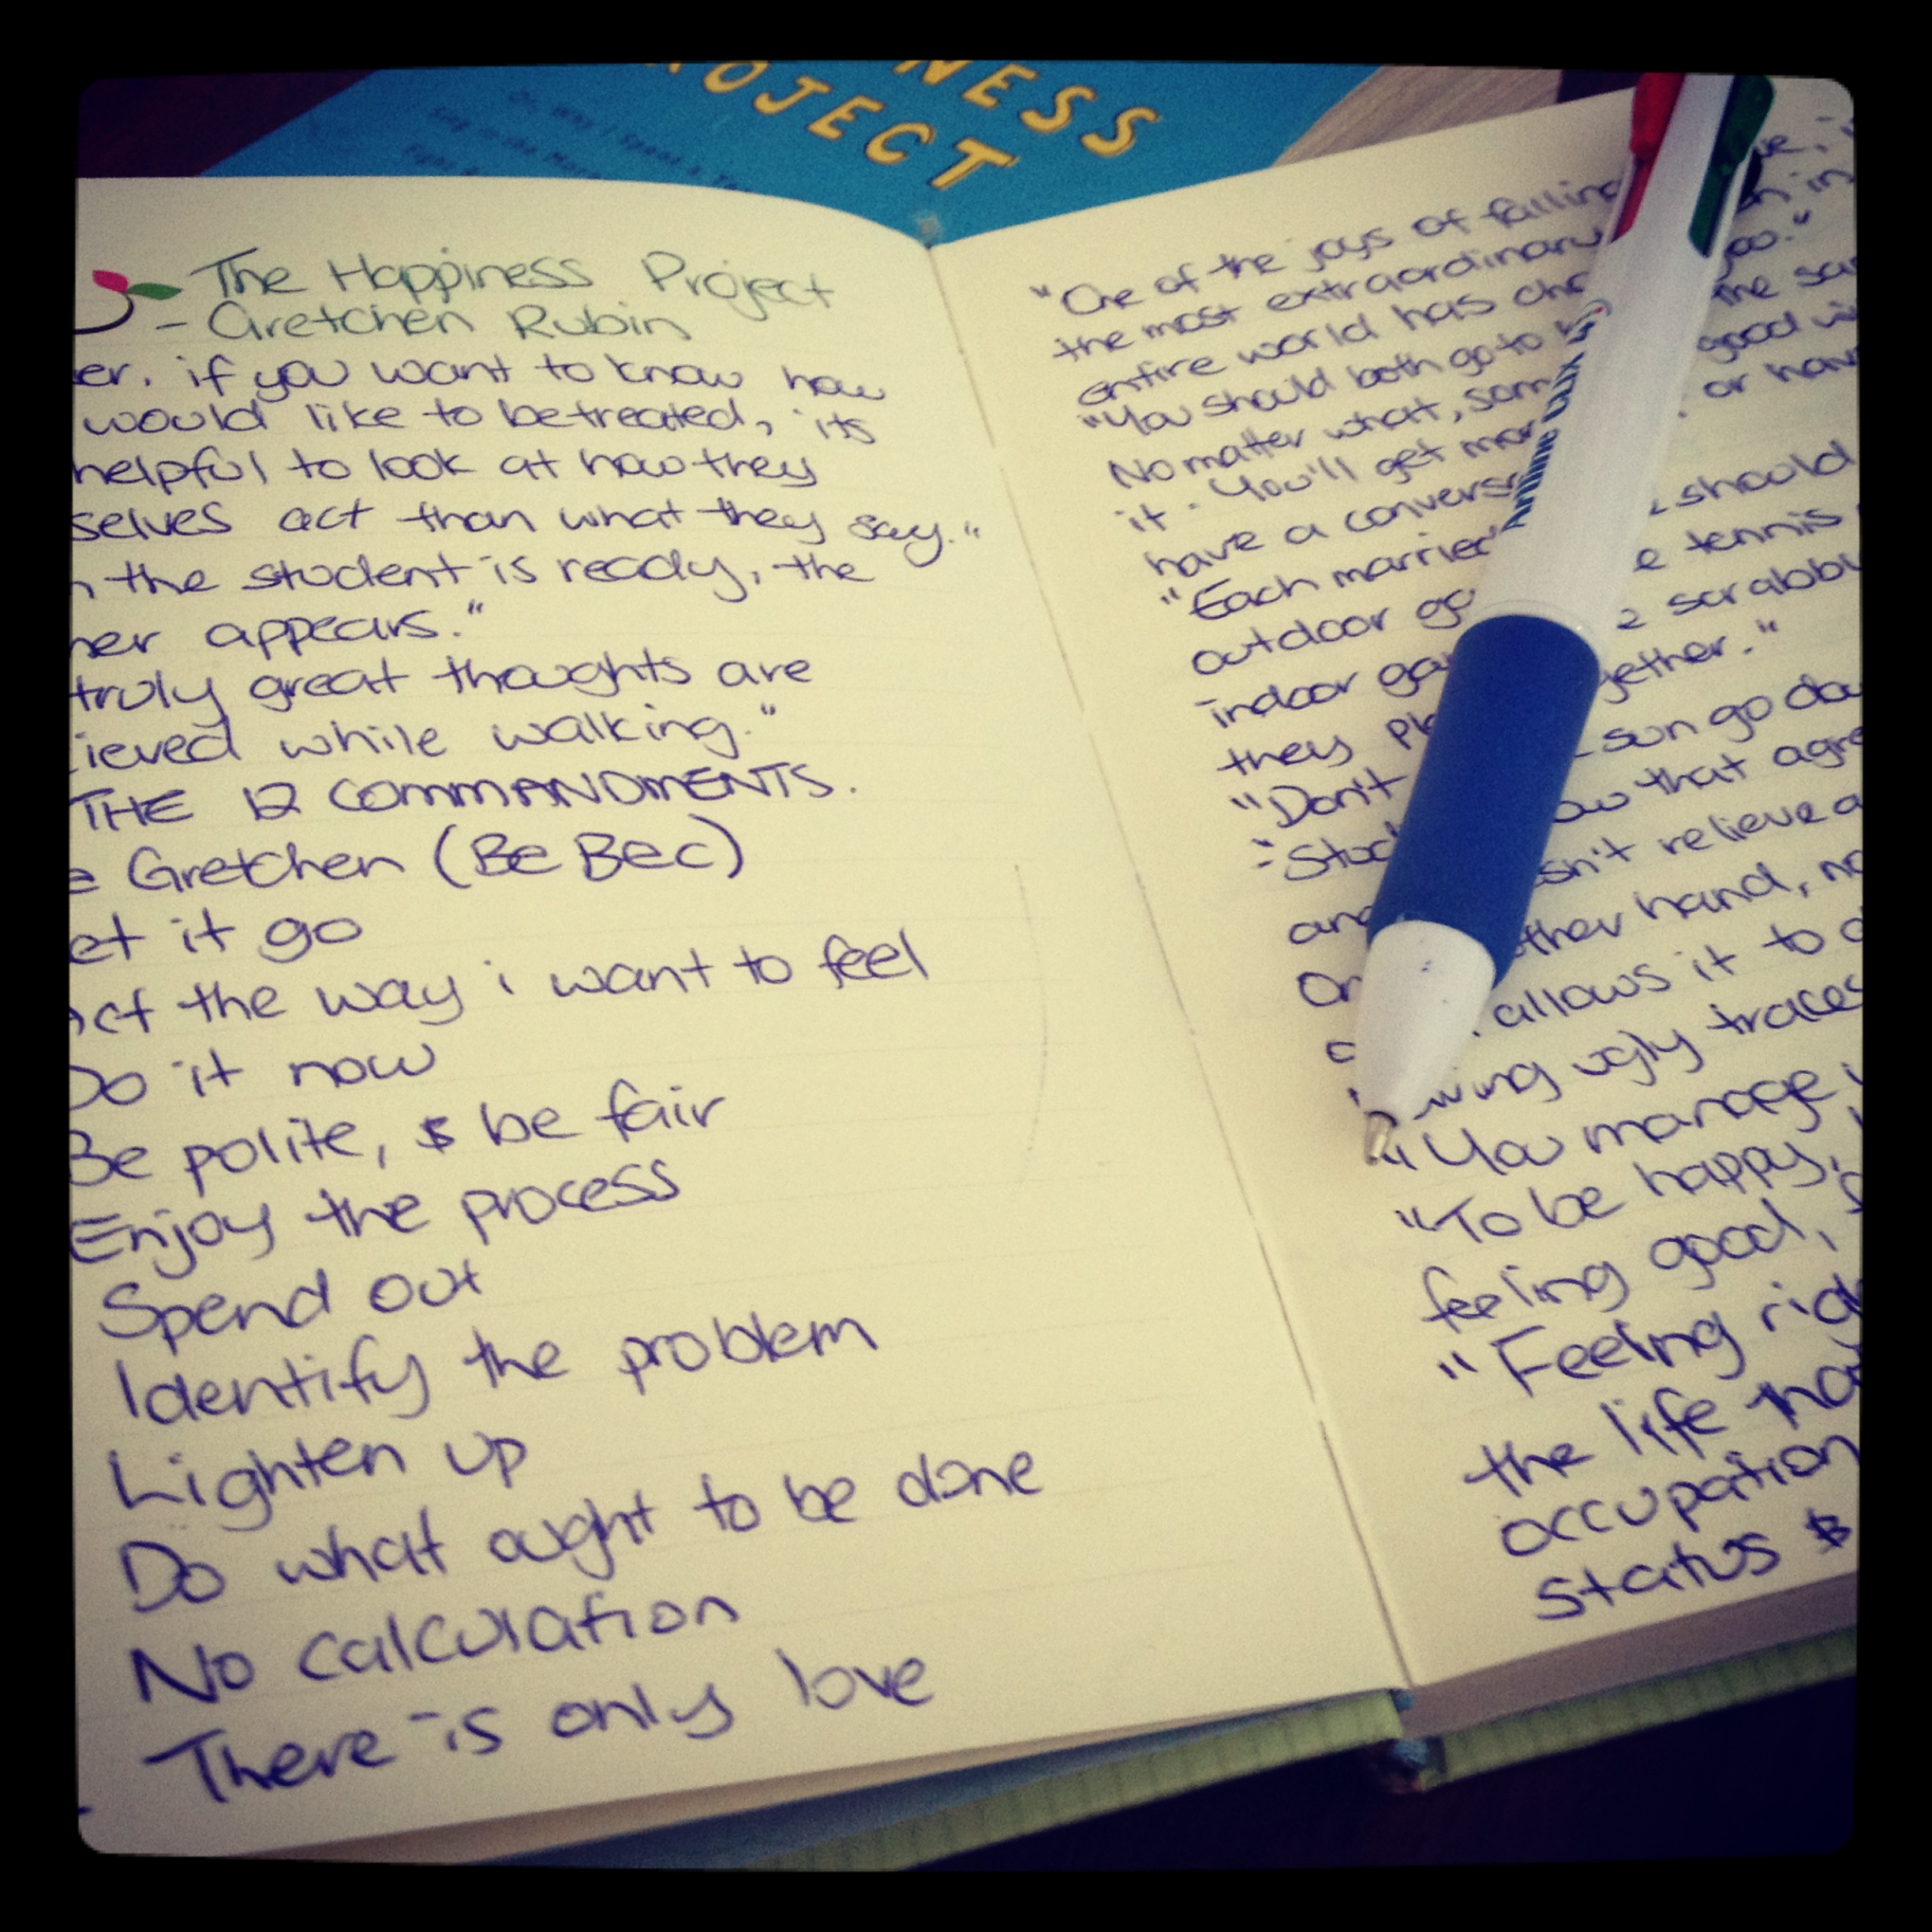 NESS
OJECT
Or, Why I Spent a
Sing in the
- The Happiness Project
- Gretchen Rubin
er. if you want to know how
would like to be treated, its
helpful to look at how they
selves act than what they say."
the student is ready, the
her appears."
truly great thoughts are
ieved while walking."
THE 12 COMMANDMENTS.
e Gretchen (Be Bec)
et it go
act the way i want to feel
Do it now
Be polite, & be fair
Enjoy the process
Spend out
Identify the problem
Lighten up
Do what ought to be done
No calculation
There is only love
"One of the joys of falling
the most extraordinary in
entire world has cho you."
"You should both go to the sa
No matter what, som good
it. You'll get mor or hav
have a convers
"Each married should
outdoor ga e tennis
indoor ga scrabbl
they pl gether."
"Don't sun go do
"Stud ow that agre
and sn't relieve a
On ther hand, no
allows it to
ving ugly traces
"You manage
"To be happy,
feeling good,
"Feeling rig
the life
occupation
Status &
Artline CLIX